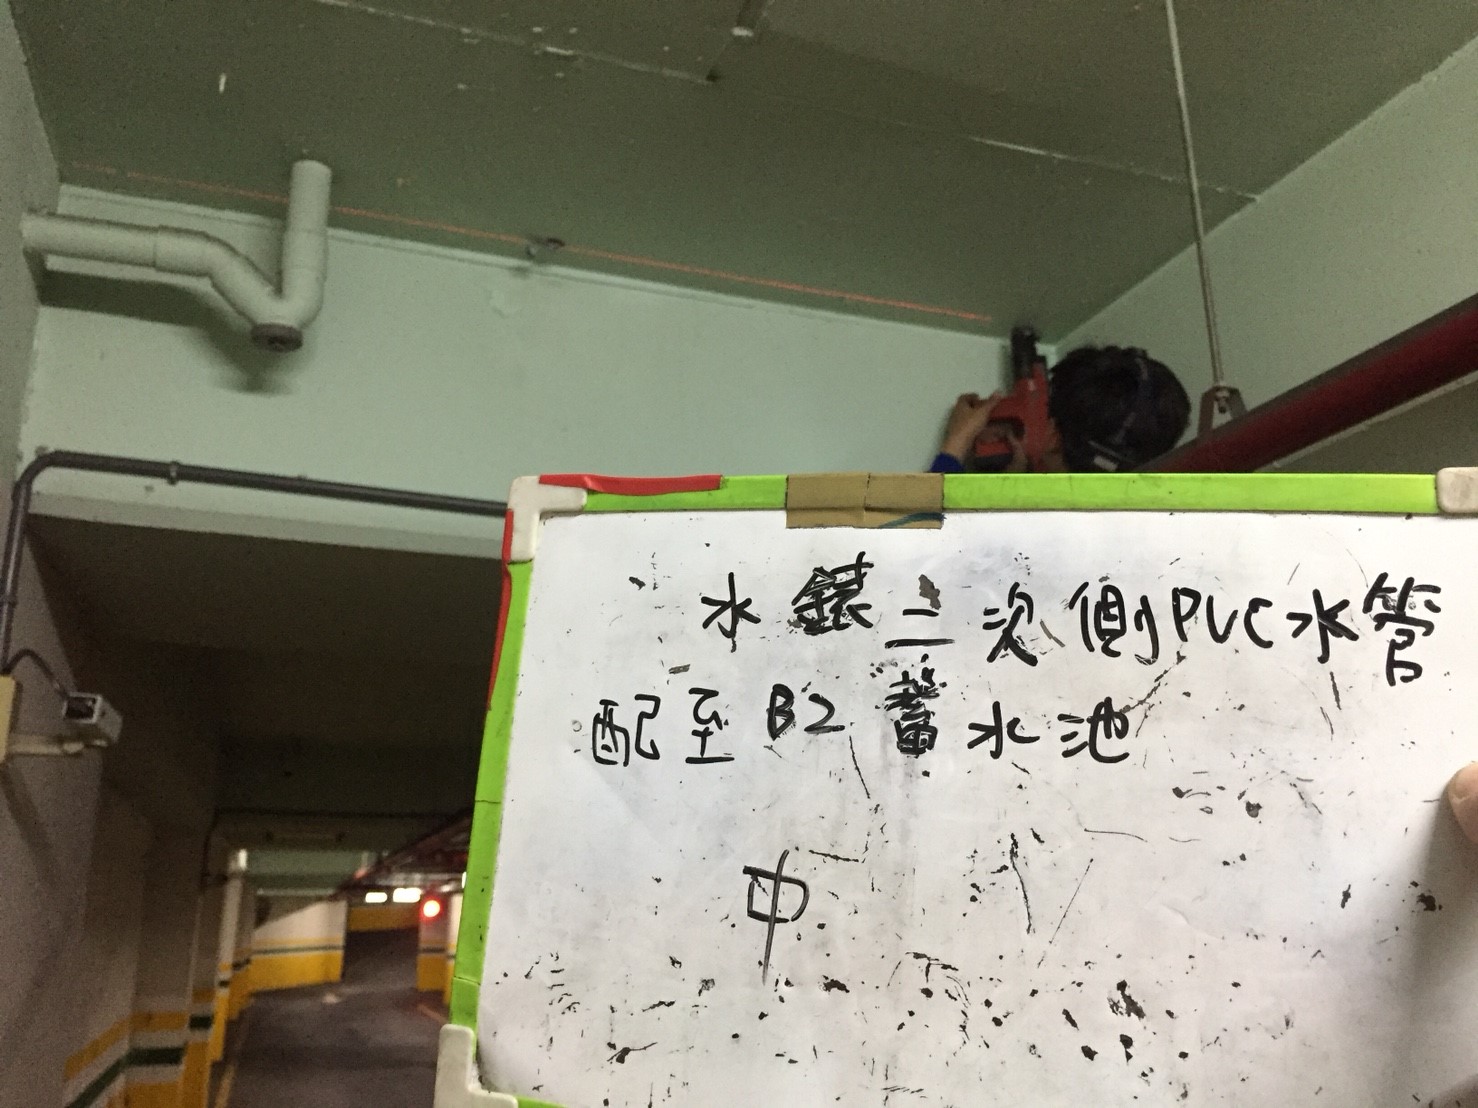 水錶二次側PVC水管
配至B2蓄水池
中